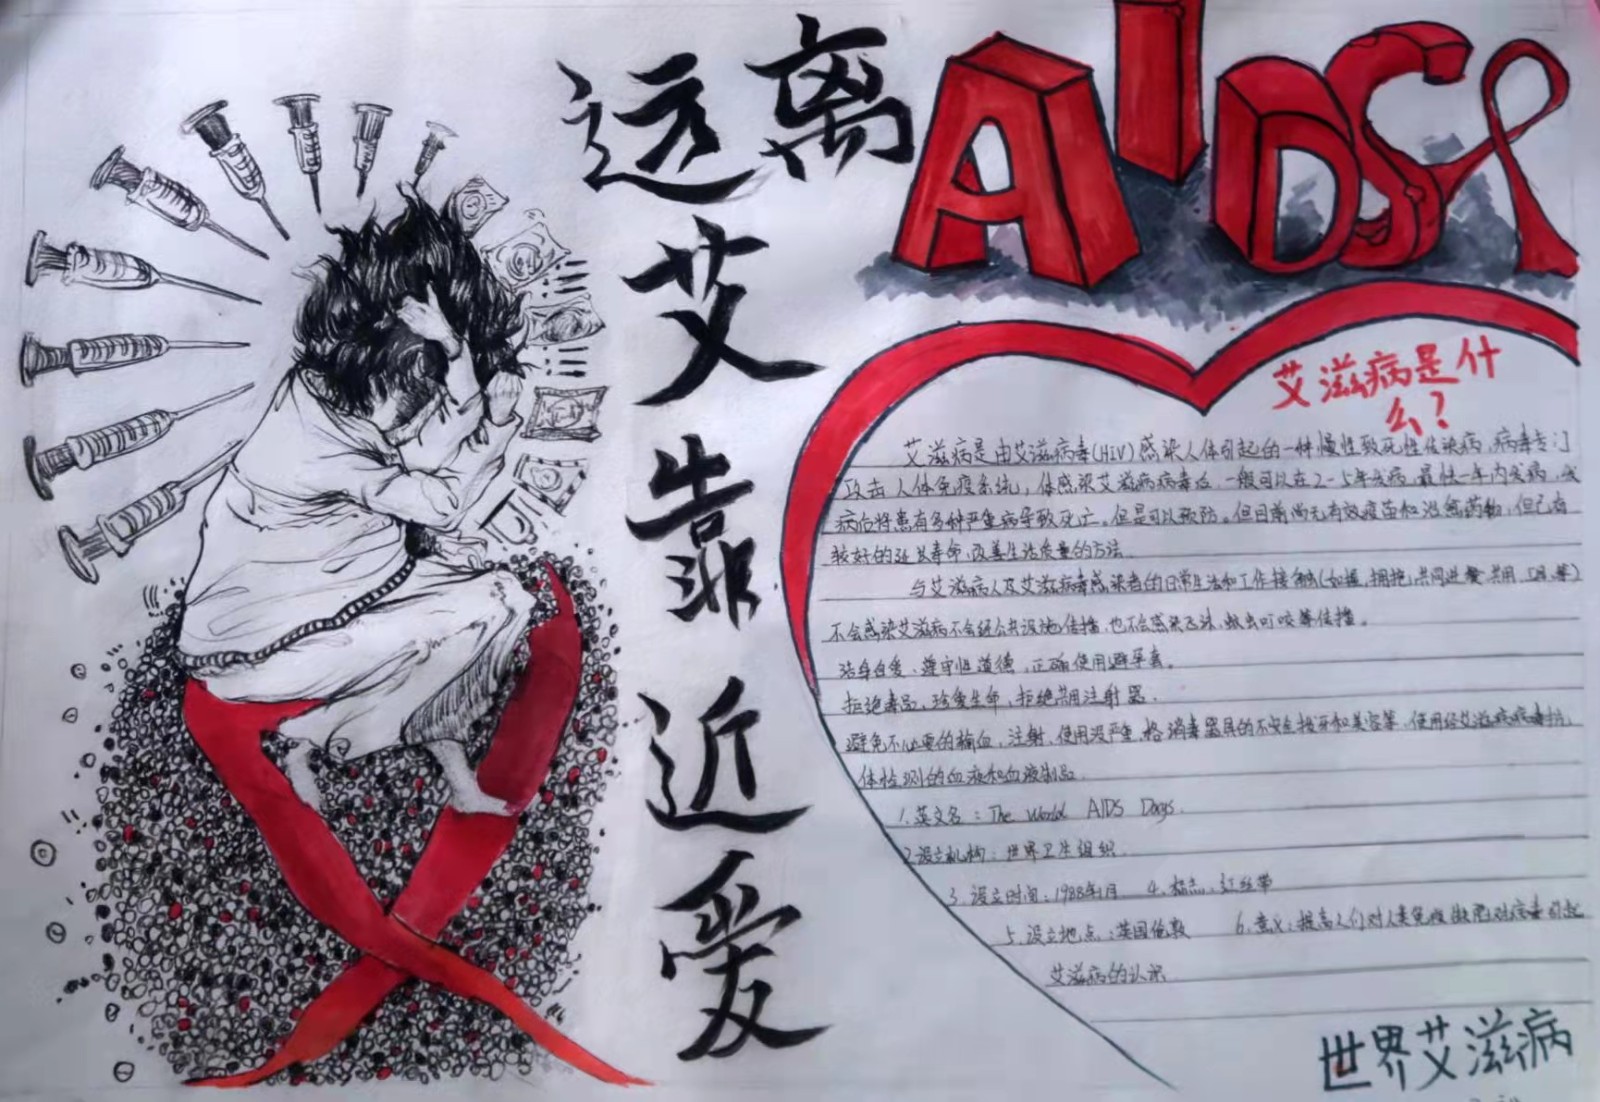 远离
艾
靠
近
爱
AIDS
艾滋病是什
么？
艾滋病是由艾滋病毒(HIV)感染人体引起的一种慢性致死性传染病,病毒专门
攻击人体免疫系统,体感染艾滋病病毒后,一般可以在2-5年发病,最快一年内发病,发
病后将患有多种严重病导致死亡。但是可以预防。但目前尚无有效疫苗和治愈药物,但已有
较好的延长寿命,改善生活质量的方法.
与艾滋病人及艾滋病毒感染者的日常生活和工作接触(如握,拥抱,共同进餐,共用工具,等)
不会感染艾滋病不会经公共设施传播,也不会感染飞沫,蚊虫叮咬等传播。
洁身自爱、遵守性道德,正确使用避孕套。
拒绝毒品,珍爱生命,拒绝共用注射器.
避免不必要的输血,注射,使用没严重格消毒器具的不安全拔牙和美容等,使用经艾滋病病毒抗
体检测的血液和血液制品.
1.英文名：The World AIDS Days.
2.设立机构：世界卫生组织.
3.设立时间：1988年1月 4.标志.红丝带
5.设立地点：英国伦敦 6.意义：提高人们对人类免疫缺陷病毒引起
艾滋病的认识
世界艾滋病